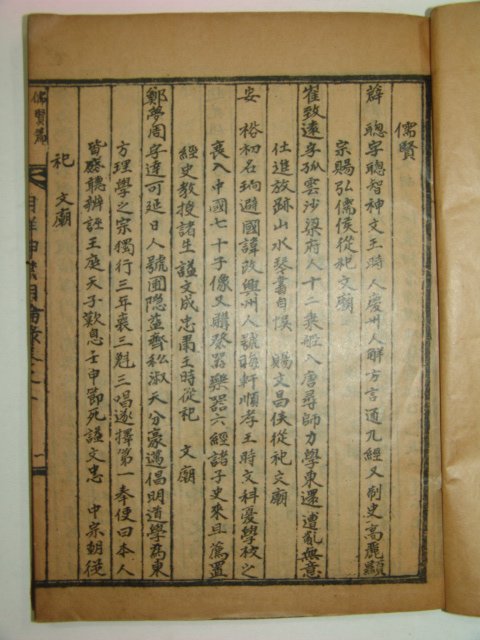 儒賢
薛 聰字聰智神文王時人慶州人解方言通九經又制吏高麗顯
宗賜弘儒侯從祀文廟
崔致遠字孤雲沙梁府人十二乘船入唐尋師力學東還遭亂無意
仕進放跡山水琴書自悞 賜文昌侯從祀文廟
安 裕初名珦避國諱改興州人號晦軒順孝王時文科憂學校之
衰入中國七十子像又購祭器樂器六經諸子史來且薦置
經史教授諸生謚文成忠肅王時從祀 文廟
鄭夢周字達可延日人號圃隱益齊私淑天分豪邁倡明道學爲東
方理學之宗獨行三年喪三魁三場遂擢第一 奉使曰本人
皆聽辨誣王庭天子歎息壬申節死謚文忠 中宗朝從
祀 文廟
儒賢篇